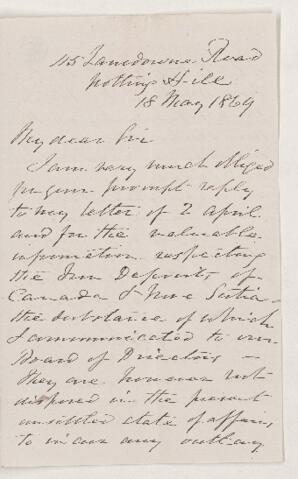 115 Lansdowne Road
Notting Hill
18 May 1869
My dear Sir
I am very much obliged
for your prompt reply
to my letter of 2 April
and for the valuable
information respecting
the Iron Deposits of
Canada & Nova Scotia -
the substance of which
I communicated to our
Board of Directors -
They are however not
disposed in the present
unsettled state of affairs
to incur any outlay